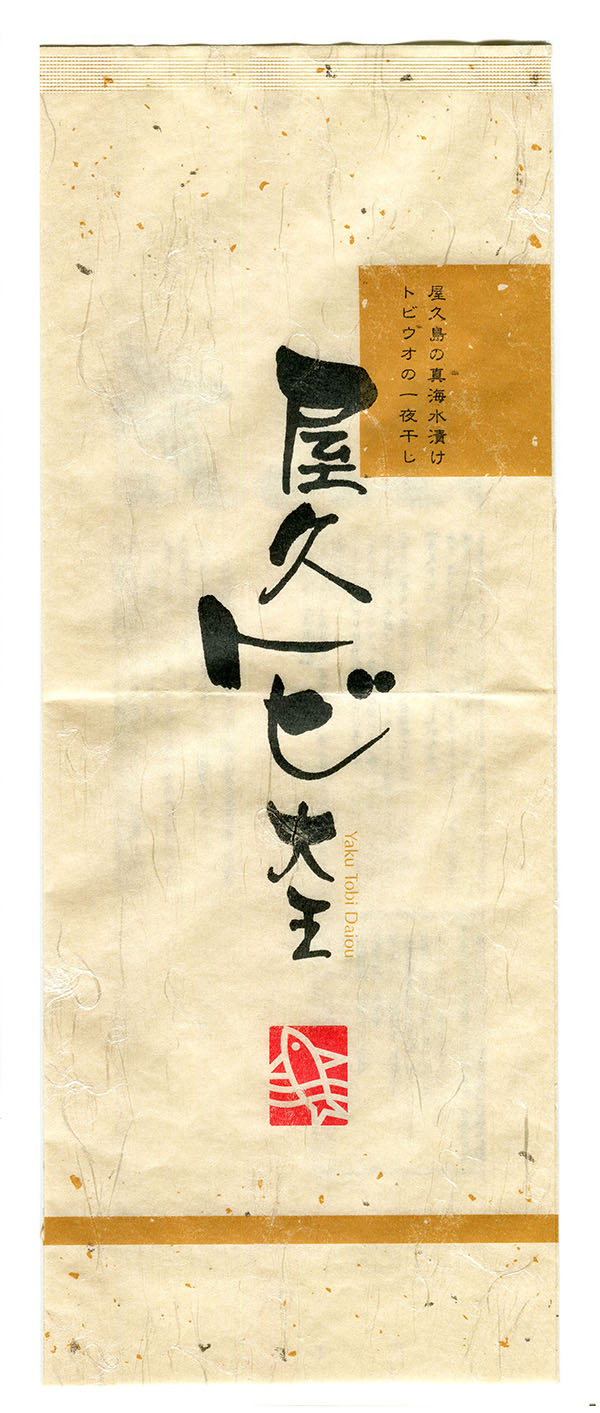 屋久島の真海水漬け
トビウオの一夜干し
屋久トビ大王
Yaku Tobi Daiou